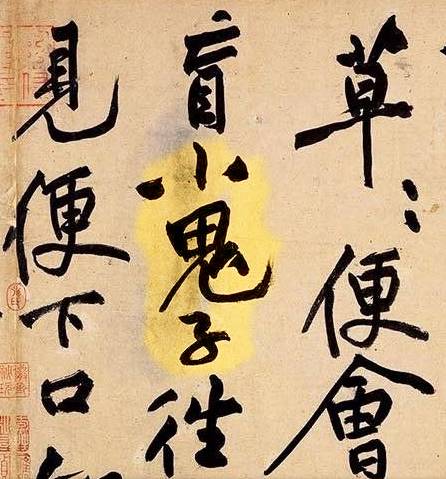 草〻便會
盲小鬼子徃
見便下口